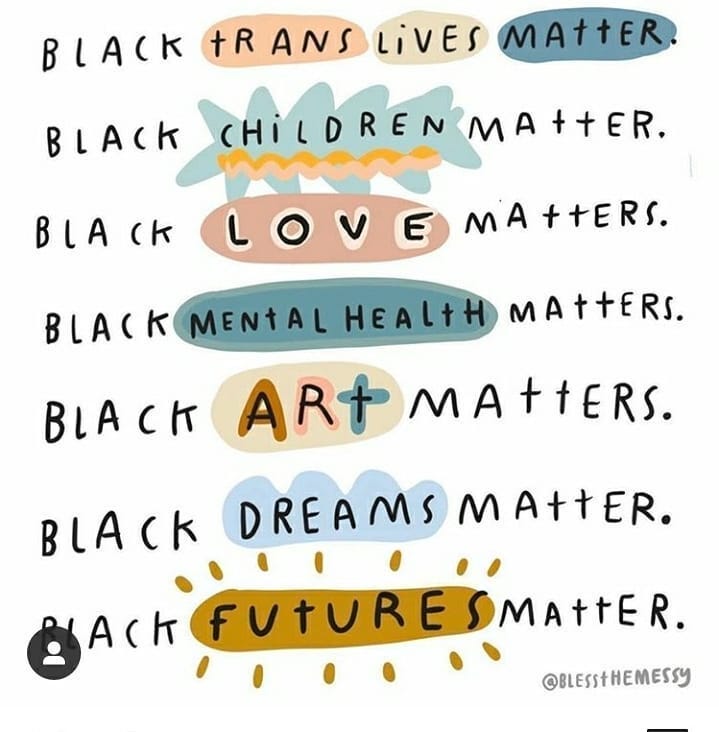 BLACK TRANS LIVES MATTER.
BLACK CHILDREN MATTER.
BLACK LOVE MATTERS.
BLACK MENTAL HEALTH MATTERS.
BLACK ART MATTERS.
BLACK DREAMS MATTER.
BLACK FUTURES MATTER.
@BLESSTHEMESSY